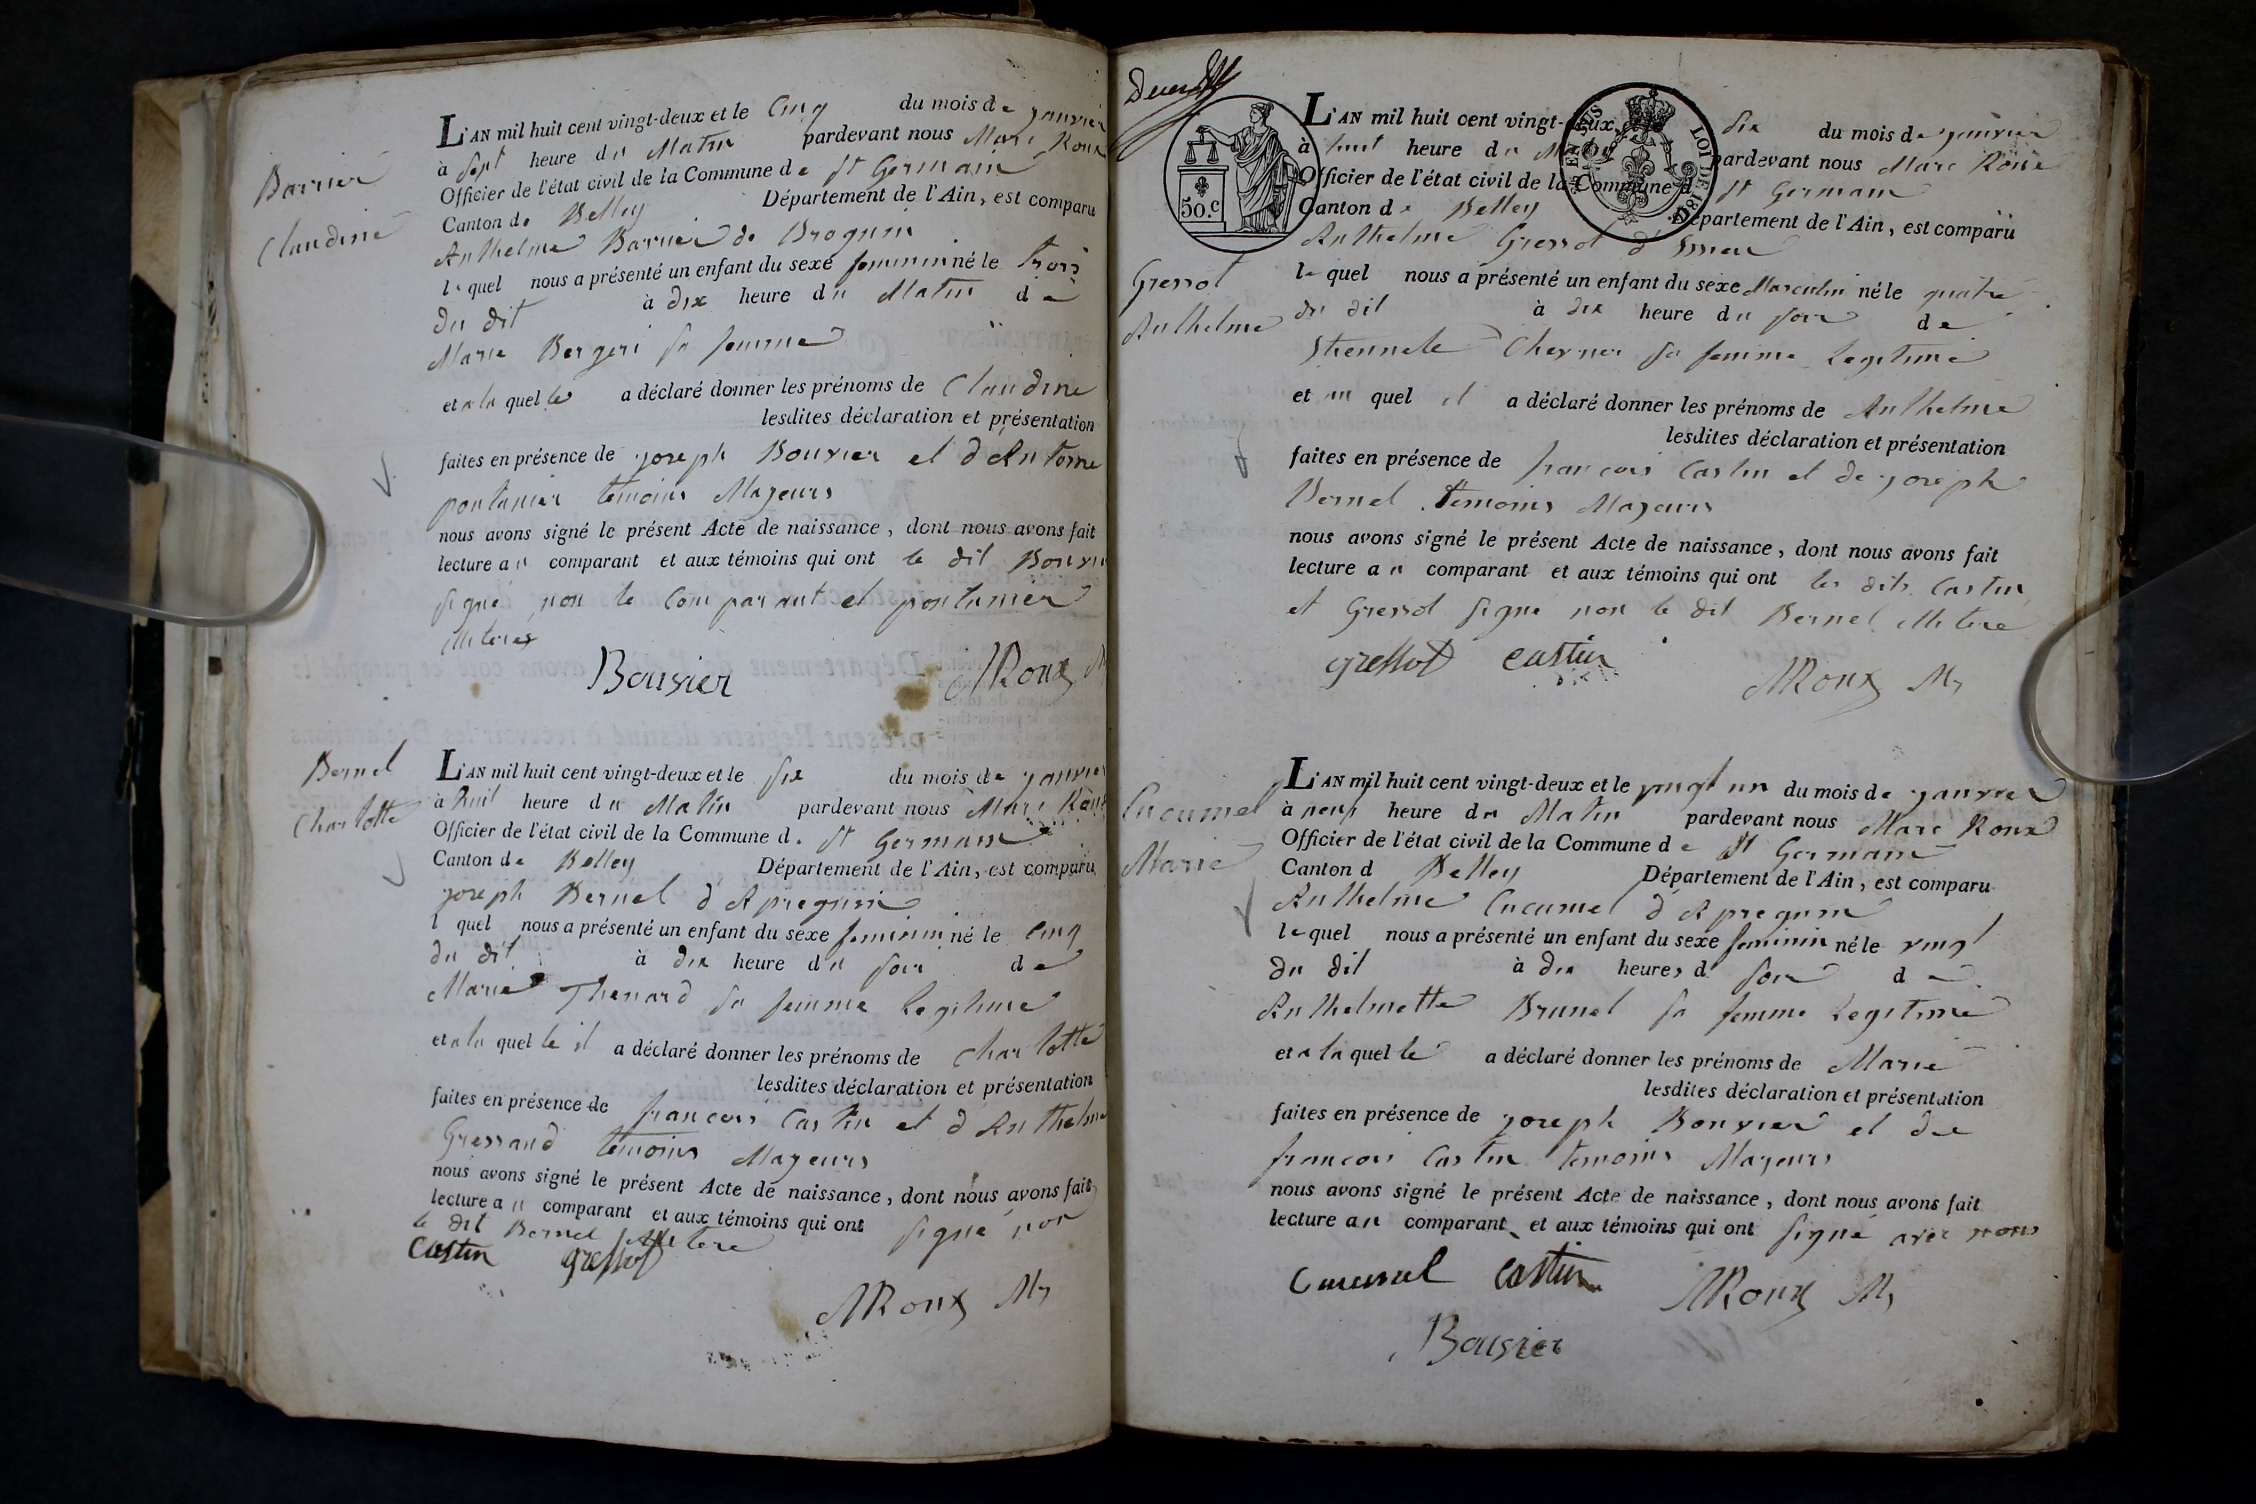 Barrier
Claudine
L'AN mil huit cent vingt-deux et le Cinq du mois de janvier
à sept heure du Matin pardevant nous Marc Roux
Officier de l'état civil de la Commune de St Germain
Canton de Belley Département de l'Ain, est comparu
Anthelme Barrier de Brognin
lequel nous a présenté un enfant du sexe feminin né le trois
du dit à dix heure du Matin de
Marie Bergeri sa femme
et a la quelle a déclaré donner les prénoms de Claudine
lesdites déclaration et présentation
faites en présence de joseph Bouvier et d'Antoine
pontanier temoins Majeurs
nous avons signé le présent Acte de naissance, dont nous avons fait
lecture au comparant et aux témoins qui ont le dit Bouvier
signé non le Comparant et pontanier
illiteres
Bouvier MRoux
Bernel
Charlotte
L'AN mil huit cent vingt-deux et le six du mois de janvier
à huit heure du Matin pardevant nous Marc Roux
Officier de l'état civil de la Commune d. St Germain
Canton de Belley Département de l'Ain, est comparu
joseph Bernel d'Apregnin
l quel nous a présenté un enfant du sexe feminin né le cinq
du dit à dix heure du soir de
Marie Thenard sa femme Legitime
et a la quelle il a déclaré donner les prénoms de Charlotte
lesdites déclaration et présentation
faites en présence de francois Castin et d'Anthelme
Gressand temoins Majeurs
nous avons signé le présent Acte de naissance, dont nous avons fait
lecture au comparant et aux témoins qui ont signé non
le dit Bernel illitere
Castin gressot
MRoux Mr
50.c
EN SUS
LOI DE 1816.
Gressot
Anthelme
L'AN mil huit cent vingt-deux et le six du mois de janvier
à huit heure du Matin pardevant nous Marc Roux
Officier de l'état civil de la Commune d St Germain
Canton de Belley Département de l'Ain, est comparu
Anthelme Gressot d'
lequel nous a présenté un enfant du sexe Masculin né le quatre
du dit à dix heure du soir de
Chervier sa femme Legitime
et au quel il a déclaré donner les prénoms de Anthelme
lesdites déclaration et présentation
faites en présence de francois Castin et de joseph
Bernel temoins Majeurs
nous avons signé le présent Acte de naissance, dont nous avons fait
lecture au comparant et aux témoins qui ont les dits Castin
et Gressot signé non le dit Bernel illitere
gressot castin
MRoux Mr
Cucumel
Marie
L'AN mil huit cent vingt-deux et le vingt un du mois de janvier
à neuf heure du Matin pardevant nous Marc Roux
Officier de l'état civil de la Commune de St Germain
Canton d Belley Département de l'Ain, est comparu
Anthelme Cucumel d'Apregnin
lequel nous a présenté un enfant du sexe feminin né le vingt
du dit à dix heures d soir de
Anthelmette Brunel sa femme Legitime
et a la quelle a déclaré donner les prénoms de Marie
lesdites déclaration et présentation
faites en présence de joseph Bouvier et de
francois Castin temoins Majeurs
nous avons signé le présent Acte de naissance, dont nous avons fait
lecture au comparant et aux témoins qui ont signé avec nous
Cucumel castin MRoux Mr
Bouvier